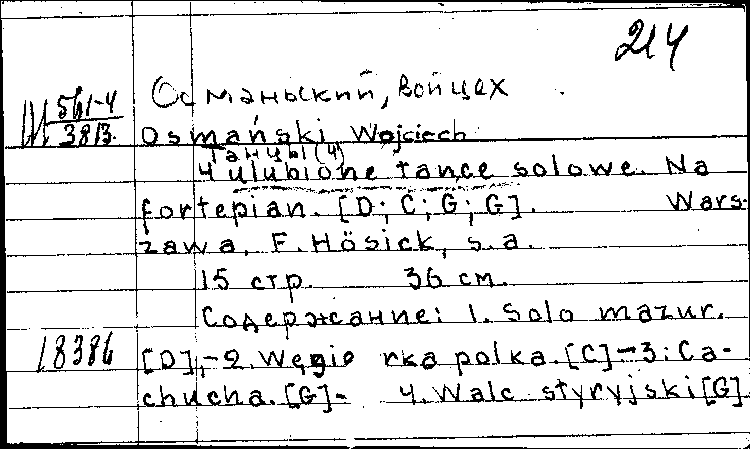 214
Османьский, Войцех
М 561-4
3813.
Osmański Wojciech
Танцы (4)
4 ulubione tańce solowe. Na
fortepian. [D; C; G; G]. Wars-
zawa, F. Hösick, s.a.
15 стр. 36 см.
Содержание: 1. Solo mazur.
18386
[D],-2. Węgierka polka. [C]-3: Ca-
chucha. [G]- 4. Walc styryjski [G]